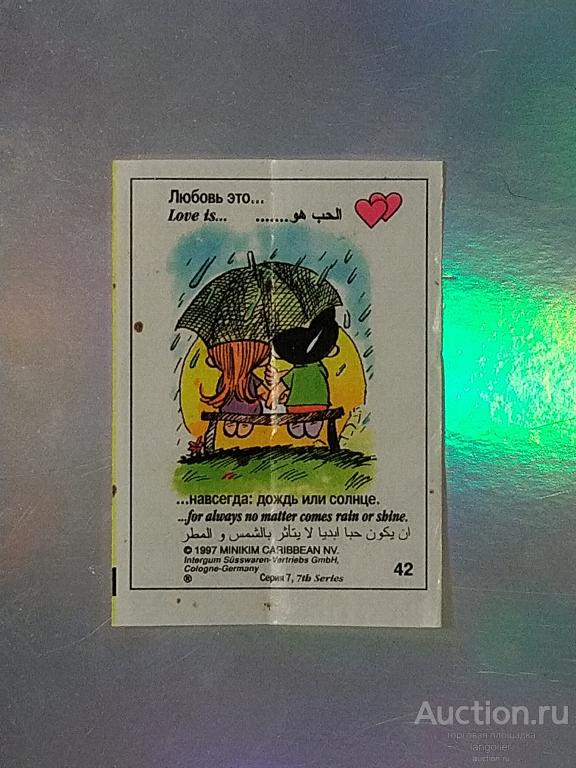 Любовь это...
Love is...
الحب هو.......
...навсегда: дождь или солнце.
...for always no matter comes rain or shine.
ان يكون حبا ابديا لا يتأثر بالشمس و المطر
© 1997 MINIKIM CARIBBEAN NV.
Intergum Süsswaren-Vertriebs GmbH,
Cologne-Germany
® Серия 7, 7th Series
42
Auction.ru
торговая площадка
langolier
auction.ru